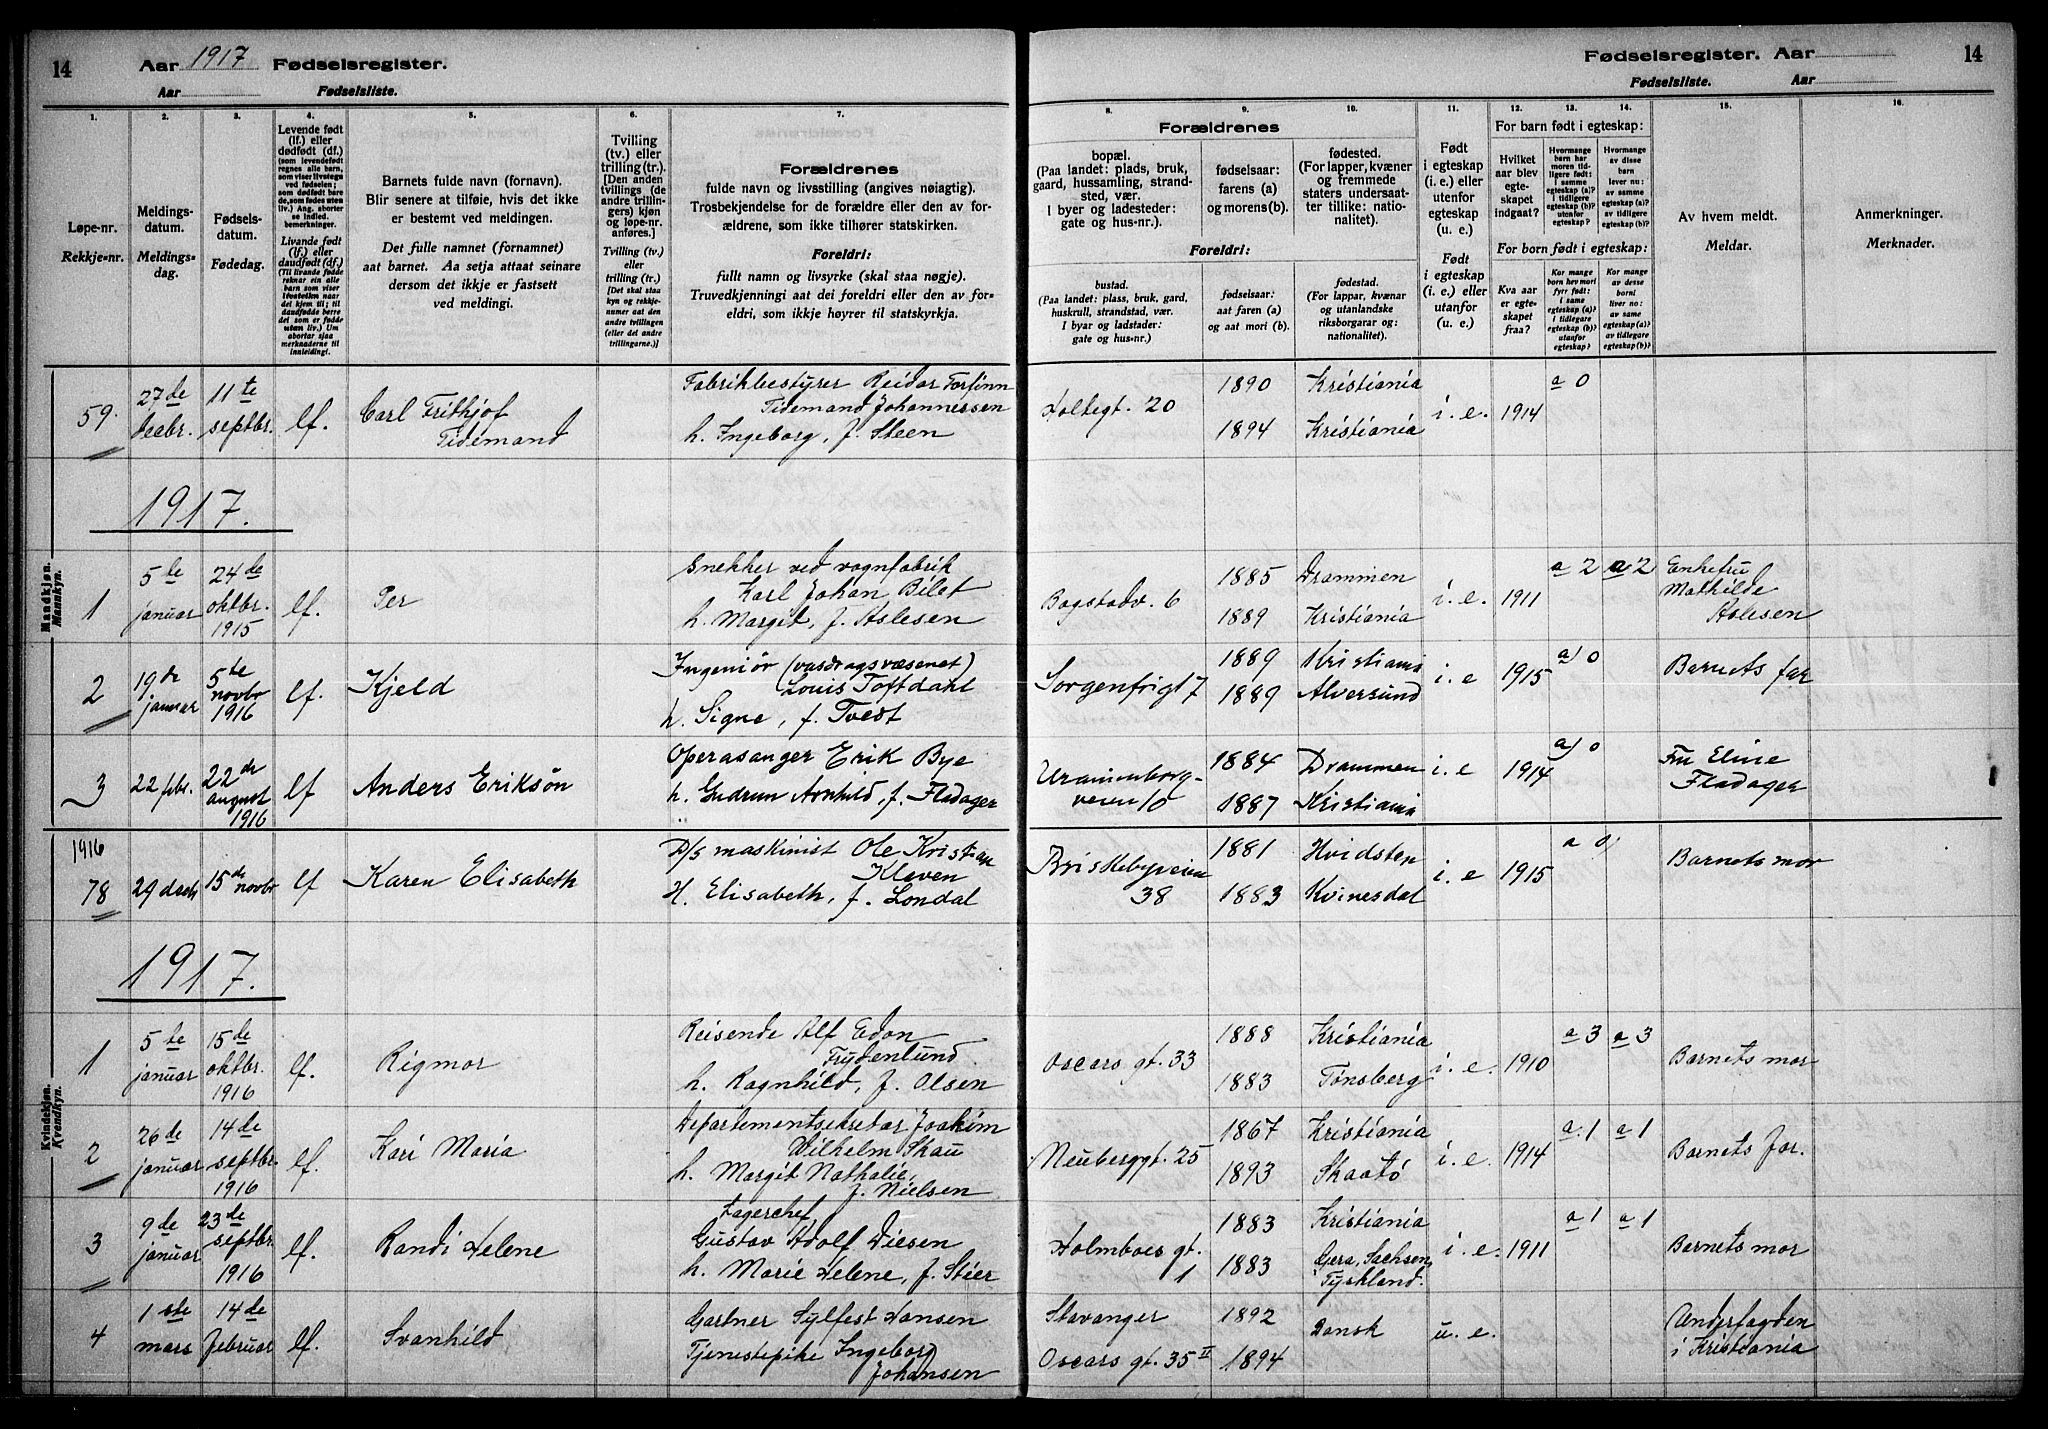 14 Aar 1917 Fødselsregister.
Aar Fødselsliste.
Fødselsregister. Aar 14
Fødselsliste. Aar
1. 2. 3. 4. 5. 6. 7.
Løpe-nr.
Rekkje-nr.
Meldings-
datum.
Meldings-
dag.
Fødsels-
datum.
Fødedag.
Levende født
(lf.) eller
dødfødt (df.)
(som levendefødt
regnes alle barn,
som viser livstegn
ved fødselen;
som dødfødt bare
de, som fødes uten
liv.) Ang. aborter
se indled.
bemerkninger.
Livande født
(lf.) eller
daudfødt (df.)
(Til livande fødde
reknar ein alle
barn som viser
livsteikn naar
dei kjem til; til
daudfødde berre
dei som er fødde
utan liv.) Um
abortar sjaa
merknaderne til
innleidingi.
Barnets fulde navn (fornavn).
Blir senere at tilføie, hvis det ikke
er bestemt ved meldingen.
Det fulle namnet (fornamnet)
aat barnet. Aa setja attaat seinare
dersom det ikkje er fastsett
ved meldingi.
Tvilling
(tv.) eller
trilling (tr.).
[Den anden
tvillings (de
andre trillin-
gers) kjøn
og løpe-nr.
anføres.]
Tvilling (tv.)
eller
trilling (tr.)
[Det skal staa
kyn og rekkje-
numer aat den
andre tvillingen
(eller dei andre
trillingarne.)]
Forældrenes
fulde navn og livsstilling (angives nøiagtig).
Trosbekjendelse for de forældre eller den av for-
ældrene, som ikke tilhører statskirken.
Foreldri:
fullt namn og livsyrke (skal staa nøgje).
Truvedkjenningi aat dei foreldri eller den av for-
eldri, som ikkje høyrer til statskyrkja.
8. 9. 10. 11. 12. 13. 14. 15. 16.
Forældrenes
bopæl.
(Paa landet: plads, bruk,
gaard, hussamling, strand-
sted, vær.
I byer og ladesteder:
gate og hus-nr.).
fødselsaar:
farens (a)
og morens (b).
fødested.
(For lapper, kvæner
og fremmede
staters undersaat-
ter tillike: natio-
nalitet).
Foreldri:
bustad.
(Paa landet: plass, bruk, gard,
huskrull, strandstad, vær.
I byar og ladstader:
gate og hus-nr.)
fødselsaar:
aat faren (a)
og aat mori (b).
fødestad.
(For lappar, kvænar
og utanlandske
riksborgarar og:
nationalitet).
Født
i egteskap
(i. e.) eller
utenfor
egteskap
(u. e.)
Født
i egteskap
(i. e.) eller
utanfor
egteskap
(u. e.).
For barn født i egteskap:
Hvilket
aar blev
egte-
skapet
indgaat?
Hvormange
barn har
moren tid-
ligere født:
i samme
egteskap (a)?
i tidligere
egteskap (b)?
utenfor
egteskap?
Hvormange
av disse
barn
lever nu:
av samme
egteskap (a)?
av tidligere
egteskap (b)?
For born født i egteskap:
Kva aar
er egte-
skapet
fraa?
Kor mange
born hev mori
fyrr født:
i same
egteskap (a)?
i tidlegare
egteskap (b)?
utanfor
egteskap?
Kor mange
av desse
borni
liver no:
av same
egteskap (a)?
av tidlegare
egteskap (b)?
Av hvem meldt.
Meldar.
Anmerkninger.
Merknader.
59. 27de decbr. 11te septbr. lf. Carl Frithjof Tidemand
Fabrikbestyrer Reidar Torfinn
Tidemand Johannessen
h. Ingeborg, f. Steen
Holtegt. 20 1890 1894 Kristiania Kristiania i. e. 1914 a 0
1917.
Mandkjøn.
Mannkyn.
1 5te januar 24de oktbr. 1915 lf. Per
Snekker ved vognfabrik
Karl Johan Bilet
h. Margit, f. Aslesen
Bogstadv. 6 1885 1889 Drammen Kristiania i. e. 1911 a 2 a 2 Enkefru Mathilde Aslesen
2 19de januar 5te novbr 1916 lf. Kjeld
Ingeniør (vasdragsvæsenet)
Louis Toftdahl
h. Signe, f. Tvedt
Sorgenfrigt 7 1889 1889 Kristiania Alversund i. e 1915 a) 0 Barnets far
3 22 febr. 22de august 1916 lf Anders Eriksøn
Operasanger Erik Bye
h. Gudrun Arnhild, f. Fladager
Uranienborg-
veien 10 1884 1887 Drammen Kristiania i. e 1914 a) 0 Fru Eline Fladager
1916
78 29 decb 15de novbr lf Karen Elisabeth
D/s maskinist Ole Kristian
Kleven
H. Elisabeth, f. Londal
Briskebyveien
38 1881 1883 Hvidsten Kvinesdal i. e 1915 a 0 Barnets mor
1917.
Kvindekjøn.
Kvendkyn.
1 5te januar 15de oktbr. 1916 lf. Rigmor
Reisende Alf Edon
Frydenlund
h. Ragnhild, f. Olsen
Oscars gt. 33 1888 1883 Kristiania Tønsberg i. e. 1910 a 3 a 3 Barnets mor
2 26de januar 14de septbr. 1916 lf. Kari Maria
Departementsekretær Joakim
Wilhelm Skau
h. Margit Nathalie,
f. Nielsen
Neuberggt. 25 1867 1893 Kristiania Skaatø i. e. 1914 a. 1 a 1 Barnets far.
3 9de januar 23de septbr. 1916 lf. Randi Helene
Lagerchef
Gustav Adolf Diesen
h. Marie Helene, f. Stier
Holmboes gt.
1 1883 1883 Kristiania Gera, Sachsen Tyskland. i. e. 1911 a 1 a 1 Barnets mor
4 1ste mars 14de februar lf. Svanhild
Gartner Sylfest Hansen
Tjenestepike Ingeborg
Johansen
Stavanger
Oscars gt. 35 II 1892 1894 Dansk u. e. Underfogden i Kristiania